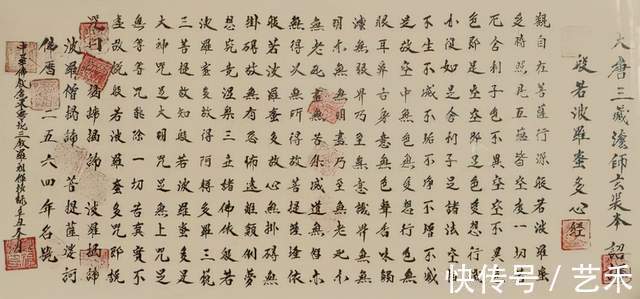 大唐三藏法師玄奘奉 詔
般若波羅蜜多心經
觀自在菩薩行深般若波羅蜜
多時照見五蘊皆空度一切苦
厄舍利子色不異空空不異色
色即是空空即是色受想行識
亦復如是舍利子是諸法空相
不生不滅不垢不淨不增不減
是故空中無色無受想行識無
眼耳鼻舌身意無色聲香味觸
法無眼界乃至無意識界無無
明亦無無明盡乃至無老死亦
無老死盡無苦集滅道無智亦
無得以無所得故菩提薩埵依
般若波羅蜜多故心無掛礙無
掛礙故無有恐怖遠離顛倒夢
想究竟涅槃三世諸佛依般若
波羅蜜多故得阿耨多羅三藐
三菩提故知般若波羅蜜多是
大神咒是大明咒是無上咒是
無等等咒能除一切苦真實不
虛故說般若波羅蜜多咒即說
咒曰 揭諦揭諦 波羅揭諦
波羅僧揭諦 菩提薩婆訶
佛曆二五六四年
中華佛教
快传号 / 艺禾